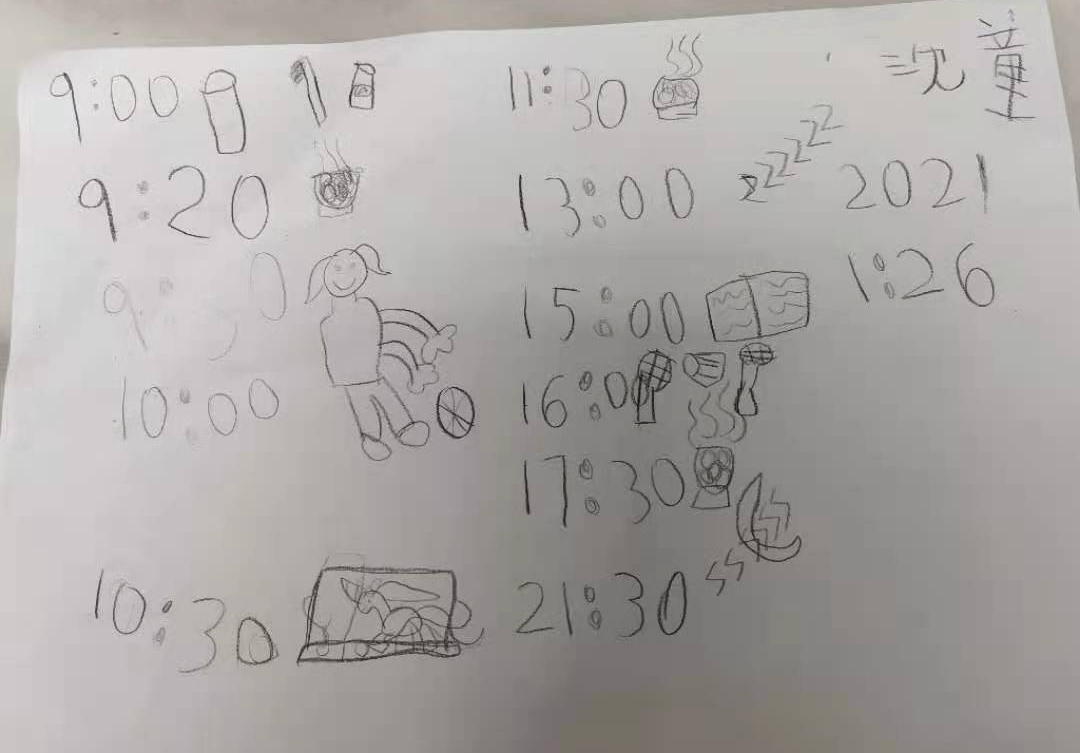 9:00
9:20
9:30
10:00
10:30
11:30
13:00 zzzzz
15:00
16:00
17:30
21:30
沈 童
2021
1:26